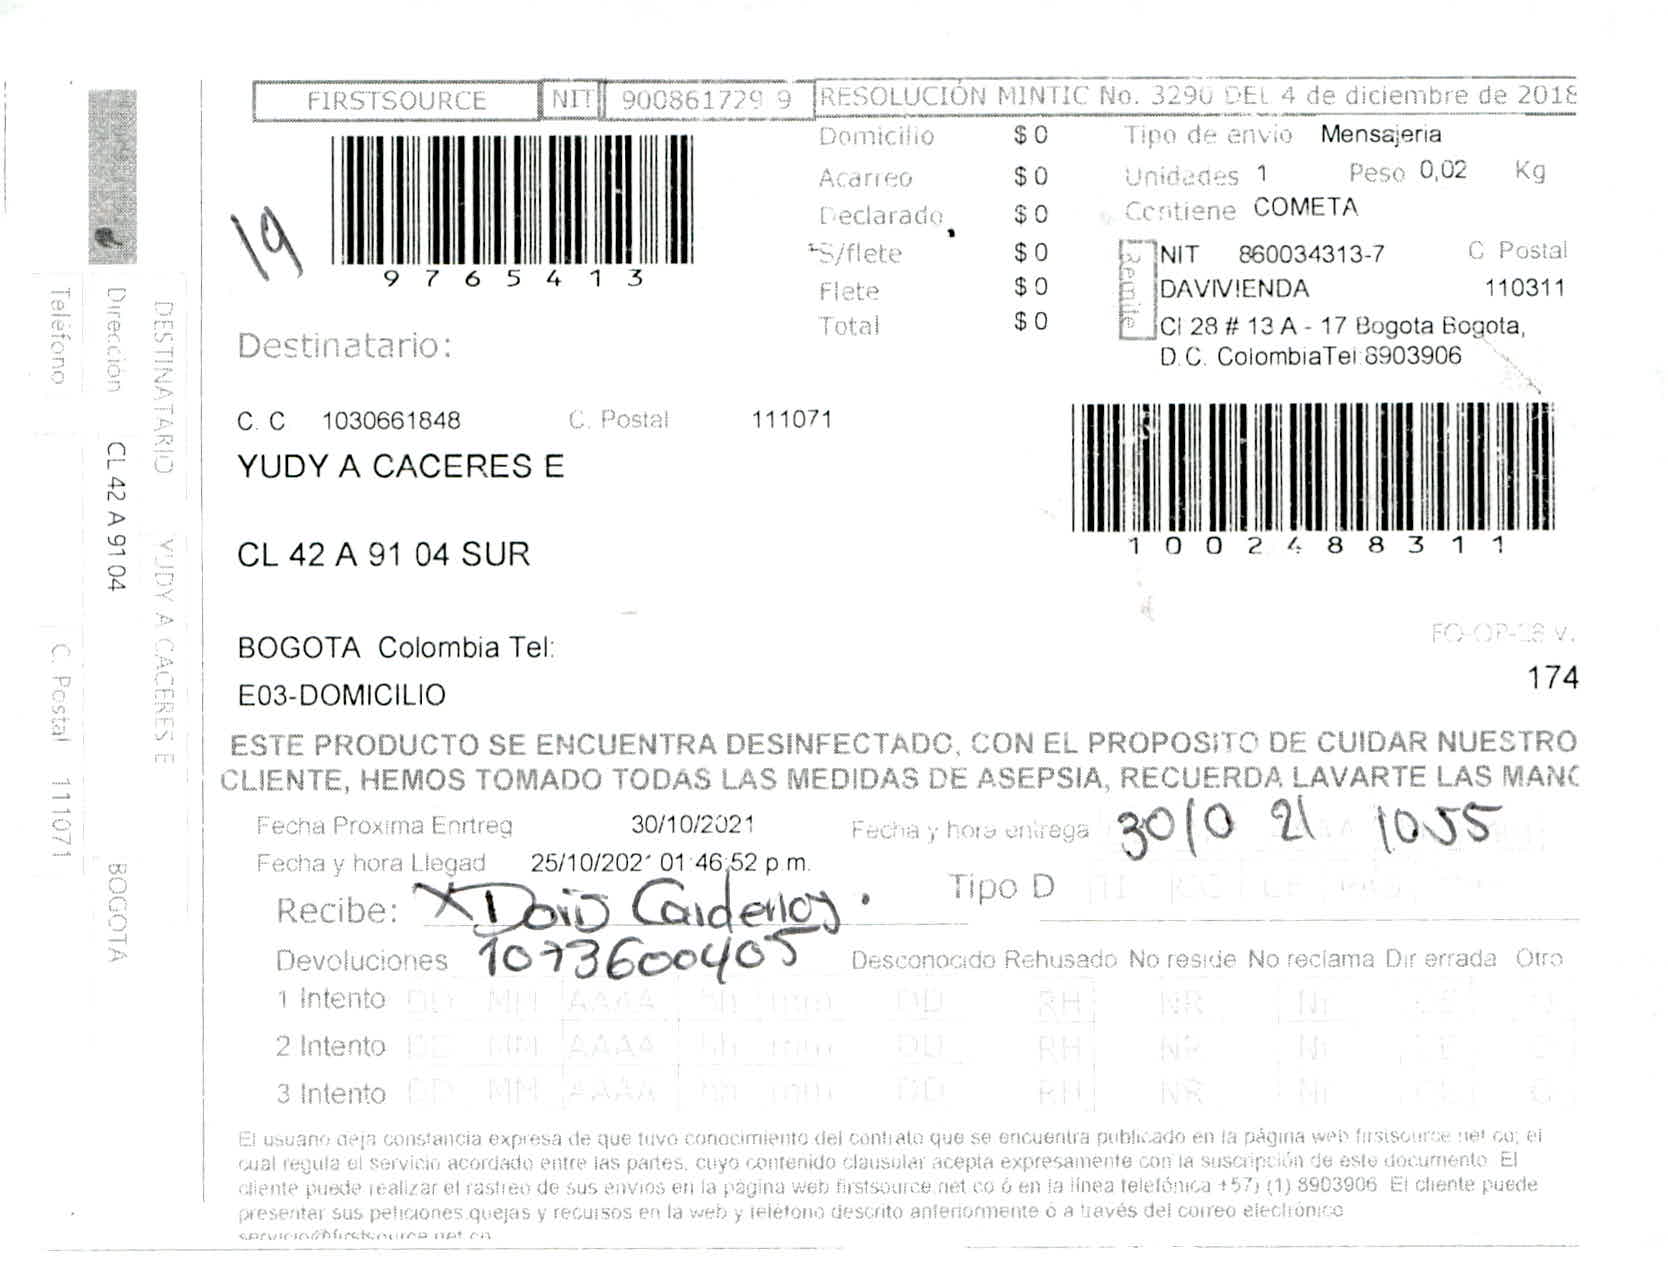 FIRSTSOURCE NIT 900861729 9 RESOLUCIÓN MINTIC No. 3290 DEL 4 de diciembre de 2018
19
9765413
Domicilio $ 0
Acarreo $ 0
Declarado $ 0
S/flete $ 0
Flete $ 0
Total $ 0
Tipo de envio Mensajeria
Unidades 1 Peso 0,02 Kg
Contiene COMETA
Remite
NIT 860034313-7 C Postal
DAVIVIENDA 110311
Cl 28 # 13 A - 17 Bogota Bogota,
D.C. ColombiaTel:8903906
Destinatario:
C. C 1030661848 C. Postal 111071
YUDY A CACERES E
CL 42 A 91 04 SUR
1002488311
BOGOTA Colombia Tel:
E03-DOMICILIO
FO-OP-28 v.
174
ESTE PRODUCTO SE ENCUENTRA DESINFECTADO, CON EL PROPOSITO DE CUIDAR NUESTRO
CLIENTE, HEMOS TOMADO TODAS LAS MEDIDAS DE ASEPSIA, RECUERDA LAVARTE LAS MANO
Fecha Proxima Enrtreg 30/10/2021
Fecha y hora entrega 30/0 21 1055
Fecha y hora Llegad 25/10/2021 01:46:52 p.m.
Tipo D
Recibe: X Doris Cardenas.
1073600405
Devoluciones Desconocido Rehusado No reside No reclama Dir errada Otro
1 Intento DD MM AAAA hh mm DD RH NR
2 Intento DD MM AAAA hh mm DD RH NR
3 Intento DD MM AAAA hh mm DD RH NR
El usuario deja constancia expresa de que tuvo conocimiento del contrato que se encuentra publicado en la página web firstsource.net.co; el
cual regula el servicio acordado entre las partes, cuyo contenido clausular acepta expresamente con la suscripción de este documento. El
cliente puede realizar el rastreo de sus envios en la página web firstsource.net.co ó en la línea telefónica +57) (1) 8903906. El cliente puede
presentar sus peticiones,quejas y recursos en la web y telefono descrito anteriormente ó a través del correo electrónico
servicio@firstsource.net.co
DESTINATARIO YUDY A CACERES E
Dirección CL 42 A 91 04 BOGOTA
Teléfono C. Postal 111071